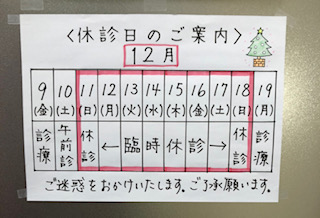 〈休診日のご案内〉
12月
9 10 11 12 13 14 15 16 17 18 19
(金) (土) (日) (月) (火) (水) (木) (金) (土) (日) (月)
診療 午前診 休診 ←臨時休診→ 休診 診療
ご迷惑をおかけいたします。ご了承願います。